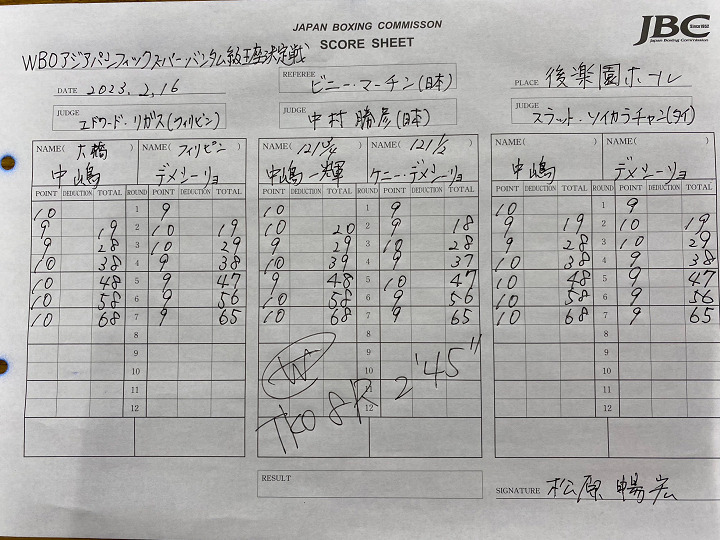 JAPAN BOXING COMMISSON
SCORE SHEET
JBC Since1952
Japan Boxing Commission
WBOアジアパシフィックスーパーバンタム級王座決定戦
DATE 2023.2.16
REFEREE ビニー・マーチン(日本)
PLACE 後楽園ホール
JUDGE エドワード・リガス(フィリピン)
JUDGE 中村勝彦(日本)
JUDGE スラット・ソイカラチャン(タイ)
NAME( 大橋 ) NAME( フィリピン )
中嶋 デメシーリョ
NAME( ) NAME( 121 1/2 )
中嶋一輝 ケニー・デメシーリョ
NAME( ) NAME( )
中嶋 デメシーリョ
POINT DEDUCTION TOTAL ROUND POINT DEDUCTION TOTAL
10 1 9
9 19 2 10 19
9 28 3 10 29
10 38 4 9 38
10 48 5 9 47
10 58 6 9 56
10 68 7 9 65
8
9
10
11
12
POINT DEDUCTION TOTAL ROUND POINT DEDUCTION TOTAL
10 1 9
10 20 2 9 18
9 29 3 10 28
10 39 4 9 37
9 48 5 10 47
10 58 6 9 56
10 68 7 9 65
8
9
10
11
12
W
TKO 8R 2'45"
POINT DEDUCTION TOTAL ROUND POINT DEDUCTION TOTAL
10 1 9
9 19 2 10 19
9 28 3 10 29
10 38 4 9 38
10 48 5 9 47
10 58 6 9 56
10 68 7 9 65
8
9
10
11
12
RESULT
SIGNATURE 松原暢宏